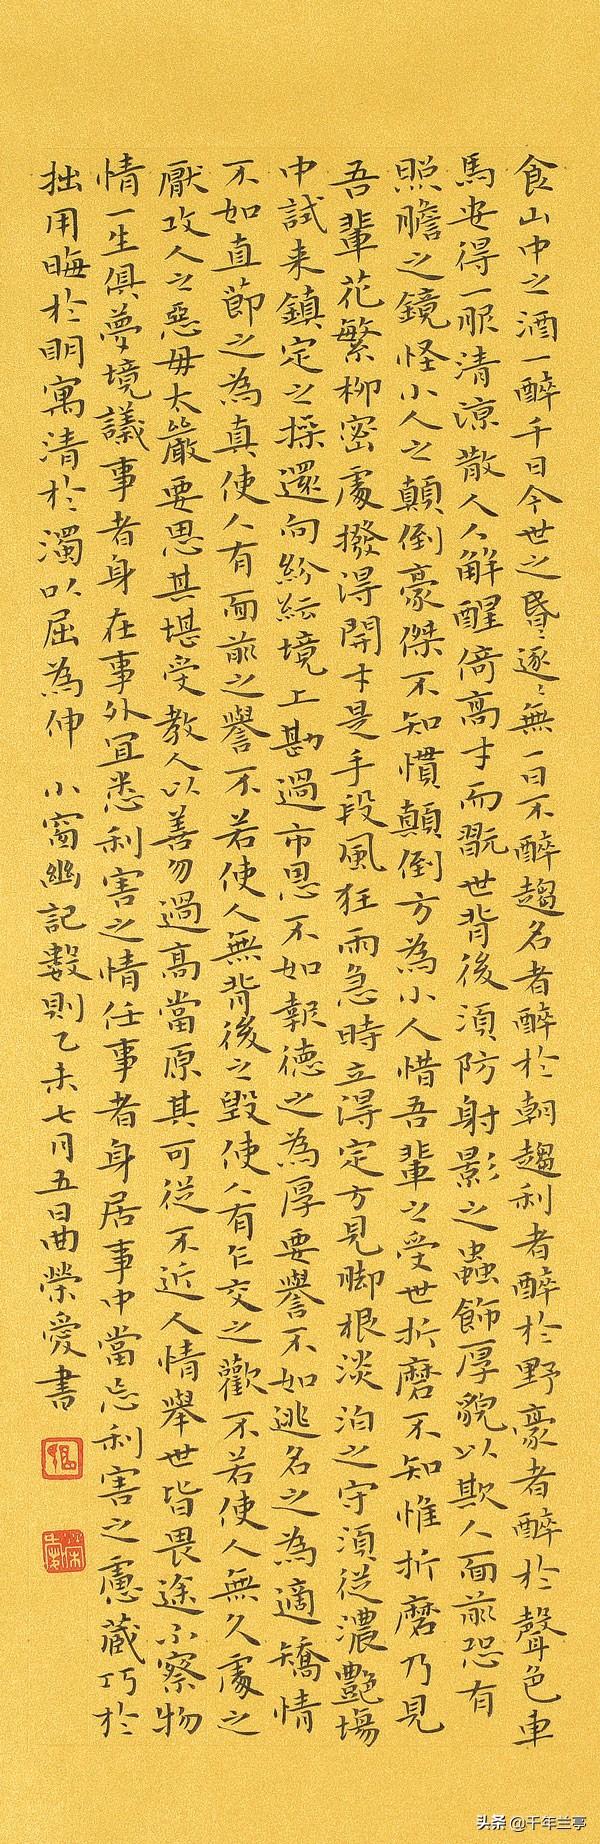 食山中之酒一醉千日今世之昏〻逐〻無一日不醉趨名者醉於朝趨利者醉於野豪者醉於聲色車
馬安得一服清涼散人人解醒倚高才而翫世背後須防射影之蟲飾厚貌以欺人面前恐有
照膽之鏡怪小人之顛倒豪傑不知慣顛倒方為小人惜吾輩之受世折磨不知惟折磨乃見
吾輩花繁柳密處撥得開才是手段風狂雨急時立得定方見脚根淡泊之守須從濃艷場
中試来鎮定之操還向紛紜境上勘過市恩不如報德之為厚要譽不如逃名之為適矯情
不如直節之為真使人有面前之譽不若使人無背後之毀使人有乍交之歡不若使人無久處之
厭攻人之惡毋太嚴要思其堪受教人以善勿過高當原其可從不近人情舉世皆畏途不察物
情一生俱夢境議事者身在事外宜悉利害之情任事者身居事中當忘利害之慮藏巧於
拙用晦於明寓清於濁以屈為伸 小窗幽記數則乙未七月五日曲榮愛書
头条 @千年兰亭